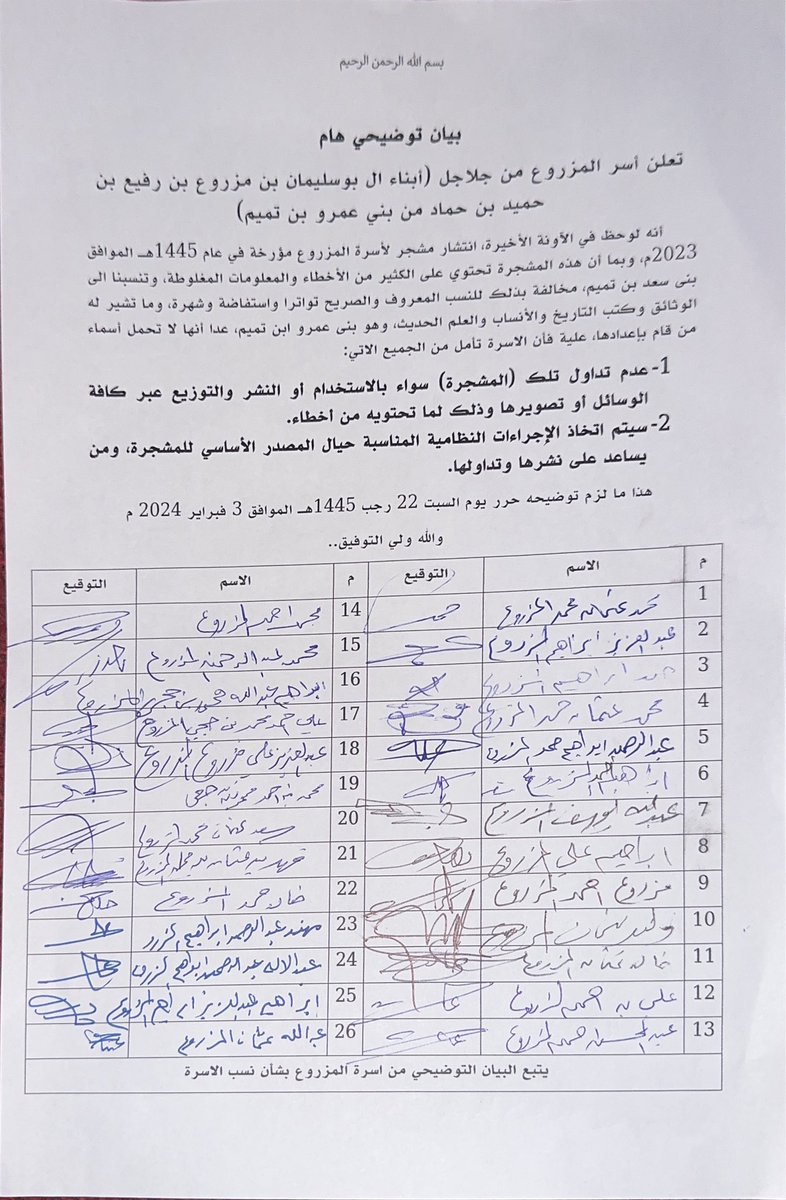 بسم الله الرحمن الرحيم
بيان توضيحي هام
تعلن أسر المزروع من جلاجل (أبناء ال بوسليمان بن مزروع بن رفيع بن
حميد بن حماد من بني عمرو بن تميم)
أنه لوحظ في الآونة الأخيرة، انتشار مشجر لأسرة المزروع مؤرخة في عام 1445هـ الموافق
2023م، وبما أن هذه المشجرة تحتوي على الكثير من الأخطاء والمعلومات المغلوطة، وتنسبنا الى
بنى سعد بن تميم، مخالفة بذلك للنسب المعروف والصريح تواترا واستفاضة وشهرة، وما تشير له
الوثائق وكتب التاريخ والأنساب والعلم الحديث، وهو بنى عمرو ابن تميم، عدا أنها لا تحمل أسماء
من قام بإعدادها، علية فأن الاسرة تأمل من الجميع الاتي:
1- عدم تداول تلك (المشجرة) سواء بالاستخدام أو النشر والتوزيع عبر كافة
الوسائل أو تصويرها وذلك لما تحتويه من أخطاء.
2- سيتم اتخاذ الإجراءات النظامية المناسبة حيال المصدر الأساسي للمشجرة، ومن
يساعد على نشرها وتداولها.
هذا ما لزم توضيحه حرر يوم السبت 22 رجب 1445هـ الموافق 3 فبراير 2024 م
والله ولي التوفيق..
م الاسم التوقيع م الاسم التوقيع
1 محمد عثمان محمد المزروع 14 محمد احمد المزروع
2 عبدالعزيز ابراهيم المزروع 15 محمد عبدالرحمن المزروع
3 ابراهيم المزروع 16 ابراهيم عبدالله محمد بن حجي المزروع
4 محمد عثمان حمد المزروع 17 علي احمد محمد بن حجي المزروع
5 عبدالرحمن ابراهيم محمد المزروع 18 عبدالعزيز علي مزروع المزروع
6 المزروع 19 محمد احمد حجي
7 عبدالله يوسف المزروع 20 سعد عثمان محمد المزروع
8 ابراهيم علي المزروع 21 فهد بن عثمان بن محمد المزروع
9 مزروع احمد المزروع 22 خالد حمد المزروع
10 وليد عثمان المزروع 23 مهند عبدالرحمن ابراهيم المزروع
11 خالد عثمان المزروع 24 عبدالاله عبدالرحمن ابراهيم المزروع
12 علي بن احمد المزروع 25 ابراهيم عبدالعزيز ابراهيم المزروع
13 عبدالمحسن احمد المزروع 26 عبدالله عثمان المزروع
يتبع البيان التوضيحي من اسرة المزروع بشأن نسب الاسرة